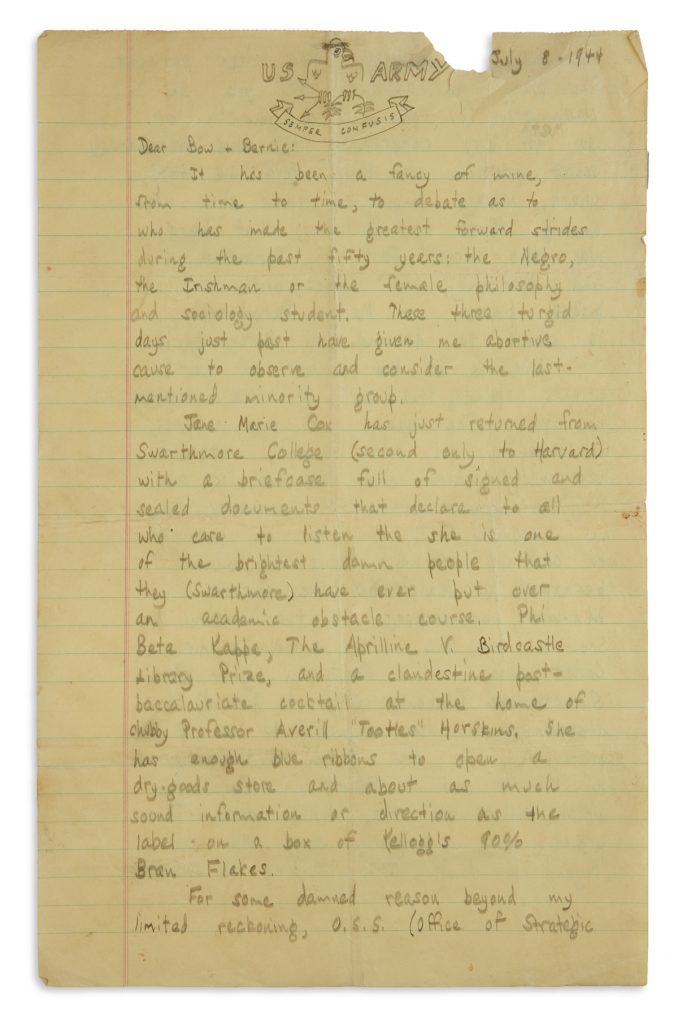 US ARMY
July 8 - 1944
SEMPER CONFUSIS
Dear Bow + Bernie:
It has been a fancy of mine,
from time to time, to debate as to
who has made the greatest forward strides
during the past fifty years: the Negro,
the Irishman or the female philosophy
and sociology student. These three turgid
days just past have given me abortive
cause to observe and consider the last-
mentioned minority group.
Jane Marie Cox has just returned from
Swarthmore College (second only to Harvard)
with a briefcase full of signed and
sealed documents that declare to all
who care to listen the she is one
of the brightest damn people that
they (Swarthmore) have ever put over
an academic obstacle course. Phi
Beta Kappa, The Aprilline V. Birdcastle
Library Prize, and a clandestine post-
baccalauriate cocktail at the home of
chubby Professor Averill "Tootles" Horskins. She
has enough blue ribbons to open a
dry-goods store and about as much
sound information or direction as the
label on a box of Kellogg's 90%
Bran Flakes.
For some damned reason beyond my
limited reckoning, O.S.S. (Office of Strategic